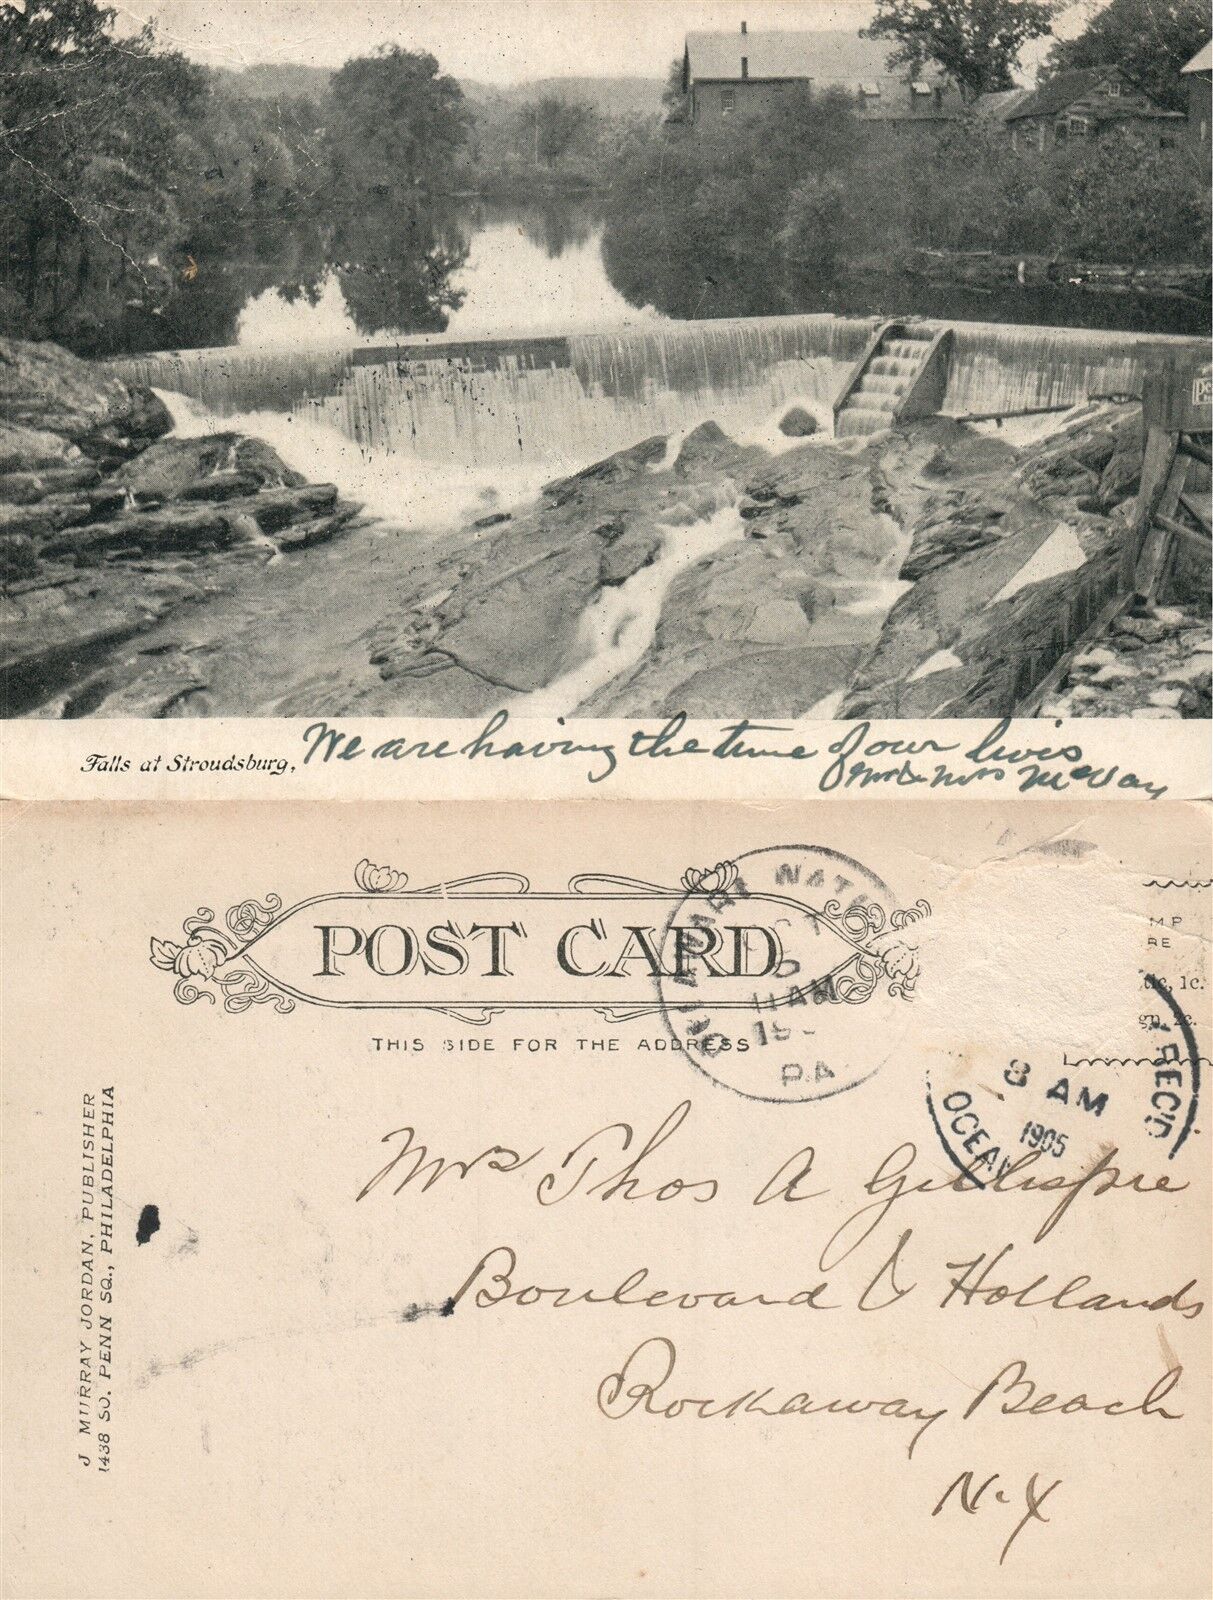 Falls at Stroudsburg,
We are having the time of our livis
Mr & Mrs McVay
POST CARD
THIS SIDE FOR THE ADDRESS
WAT
11 AM
19
PA
MP
RE
1c.
gn, 2c.
REC'D
8 AM
1905
OCEAN
Mrs Thos A Gillespie
Boulevard & Hollands
Rockaway Beach
N.Y
J MURRAY JORDAN, PUBLISHER
1438 SO. PENN SQ., PHILADELPHIA